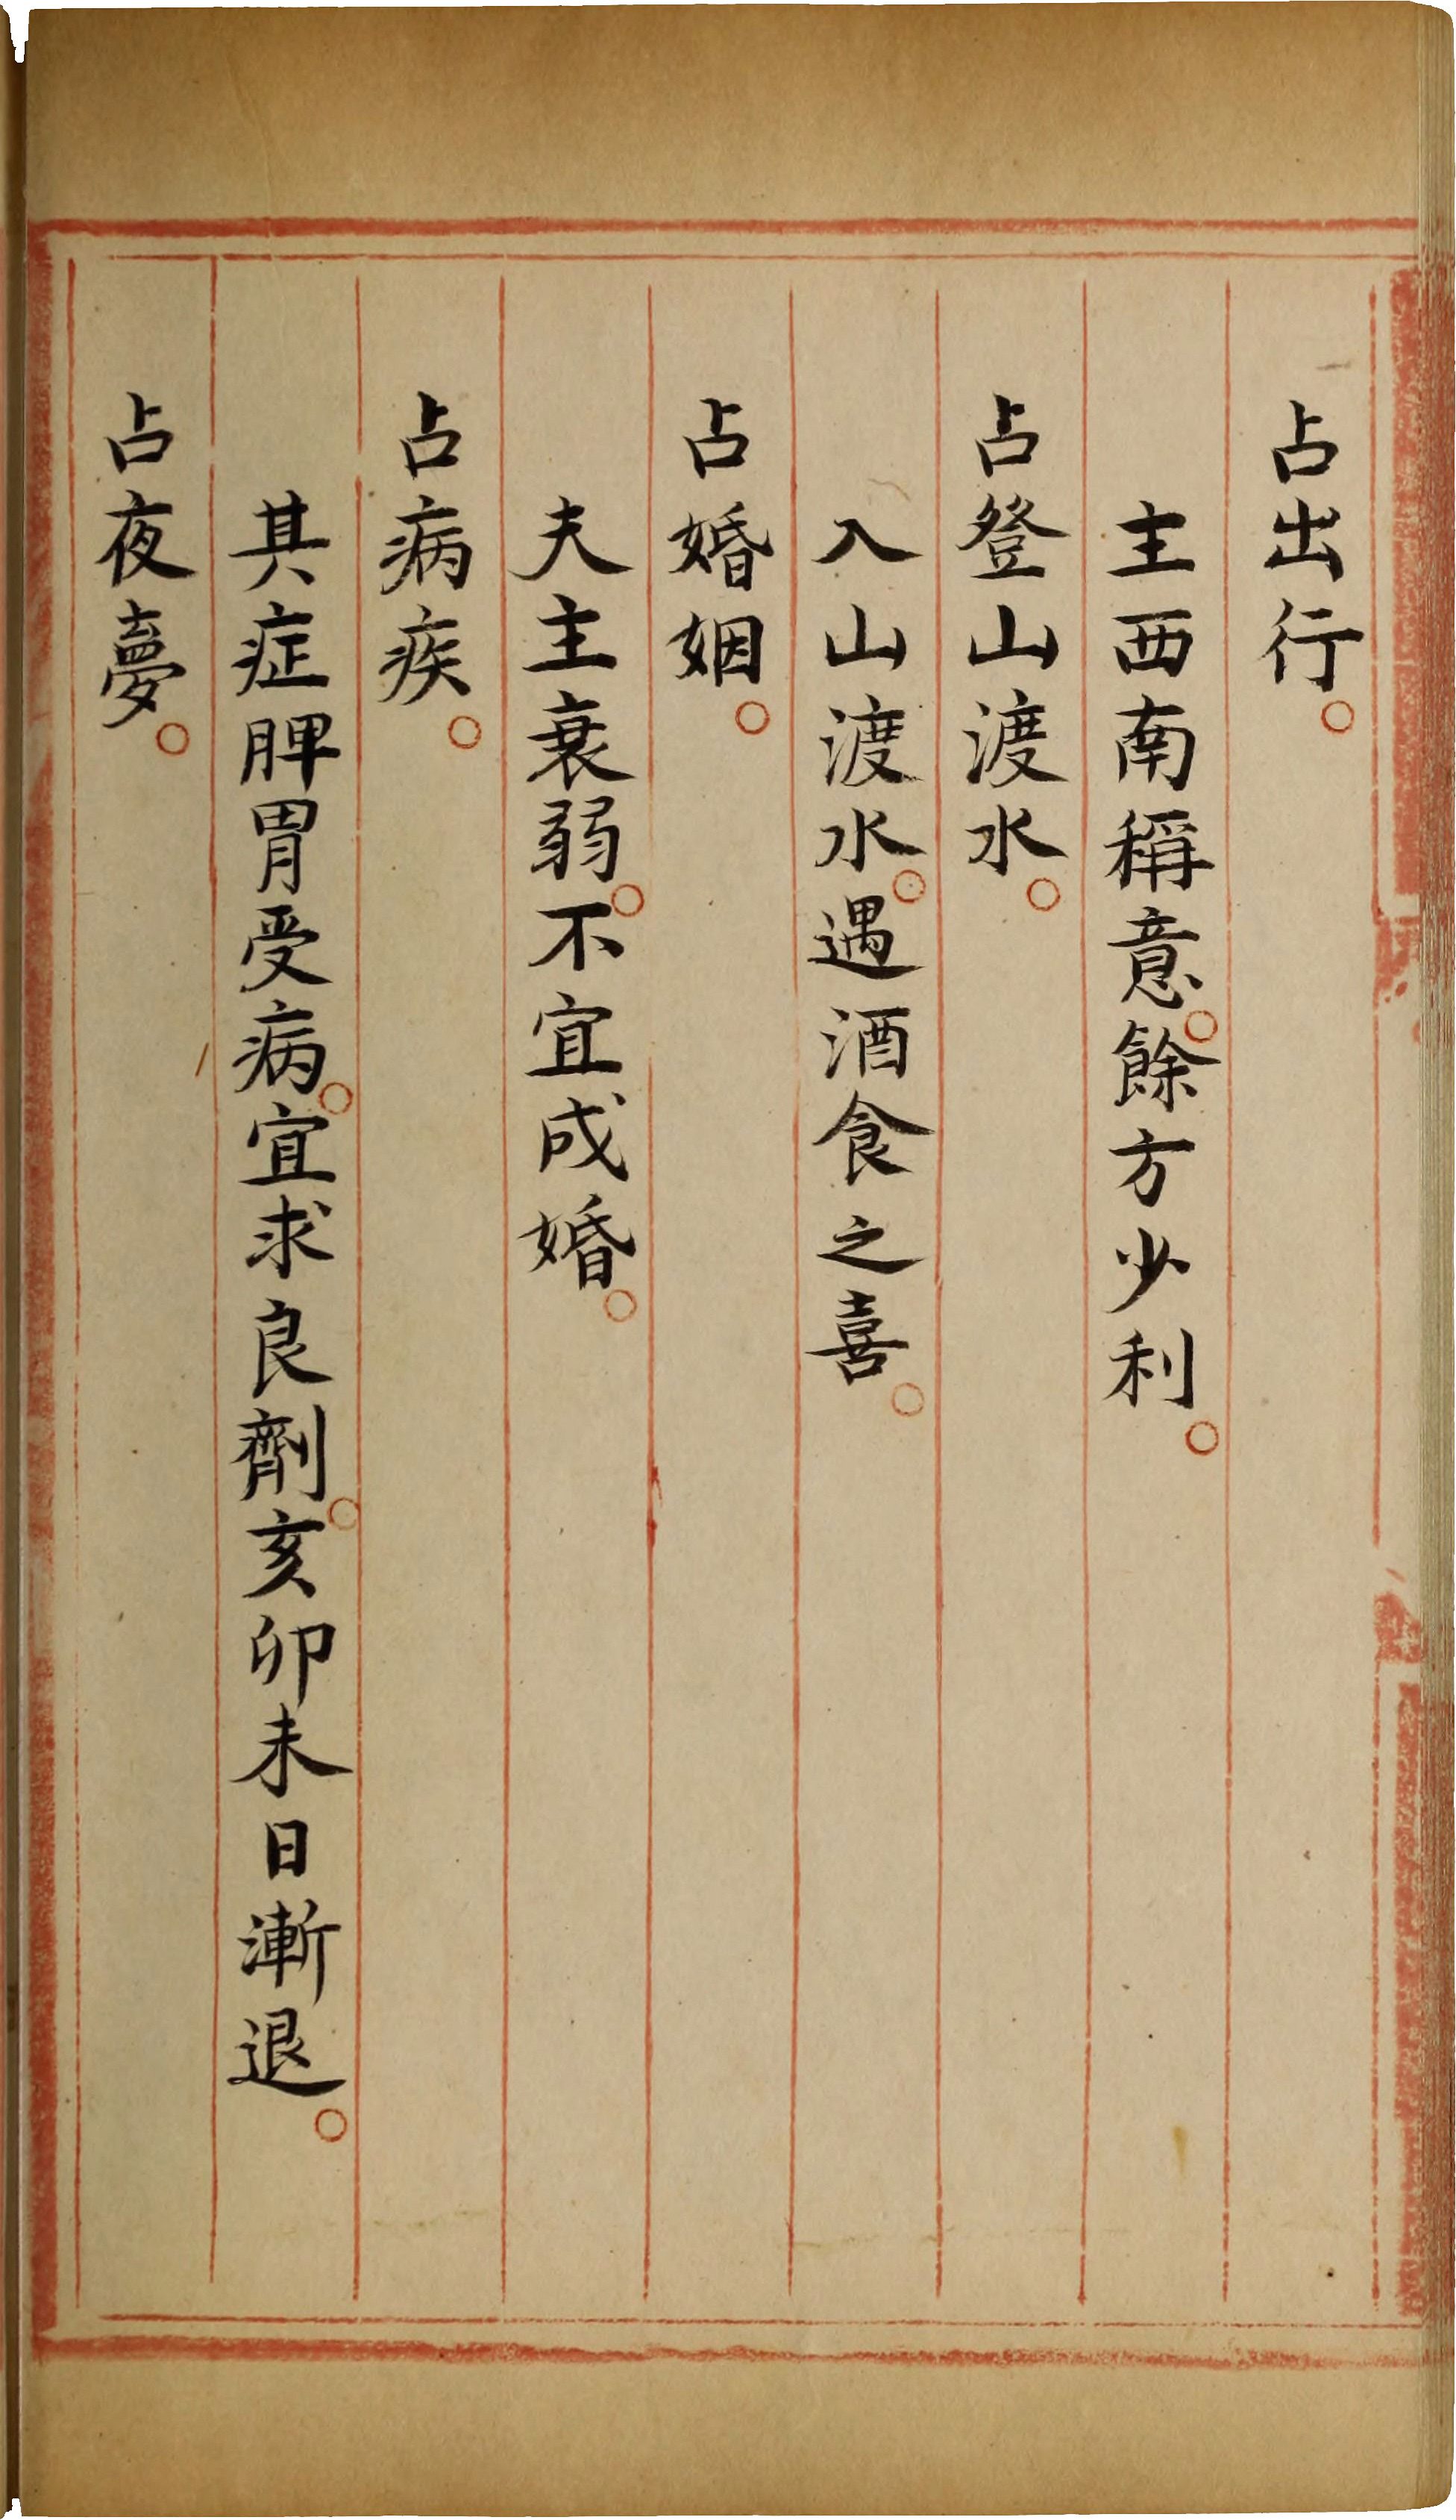 占出行。
主西南稱意。餘方少利。
占登山渡水。
入山渡水。遇酒食之喜。
占婚姻。
夫主衰弱。不宜成婚。
占病疾。
其症脾胃受病。宜求良劑。亥卯未日漸退。
占夜夢。